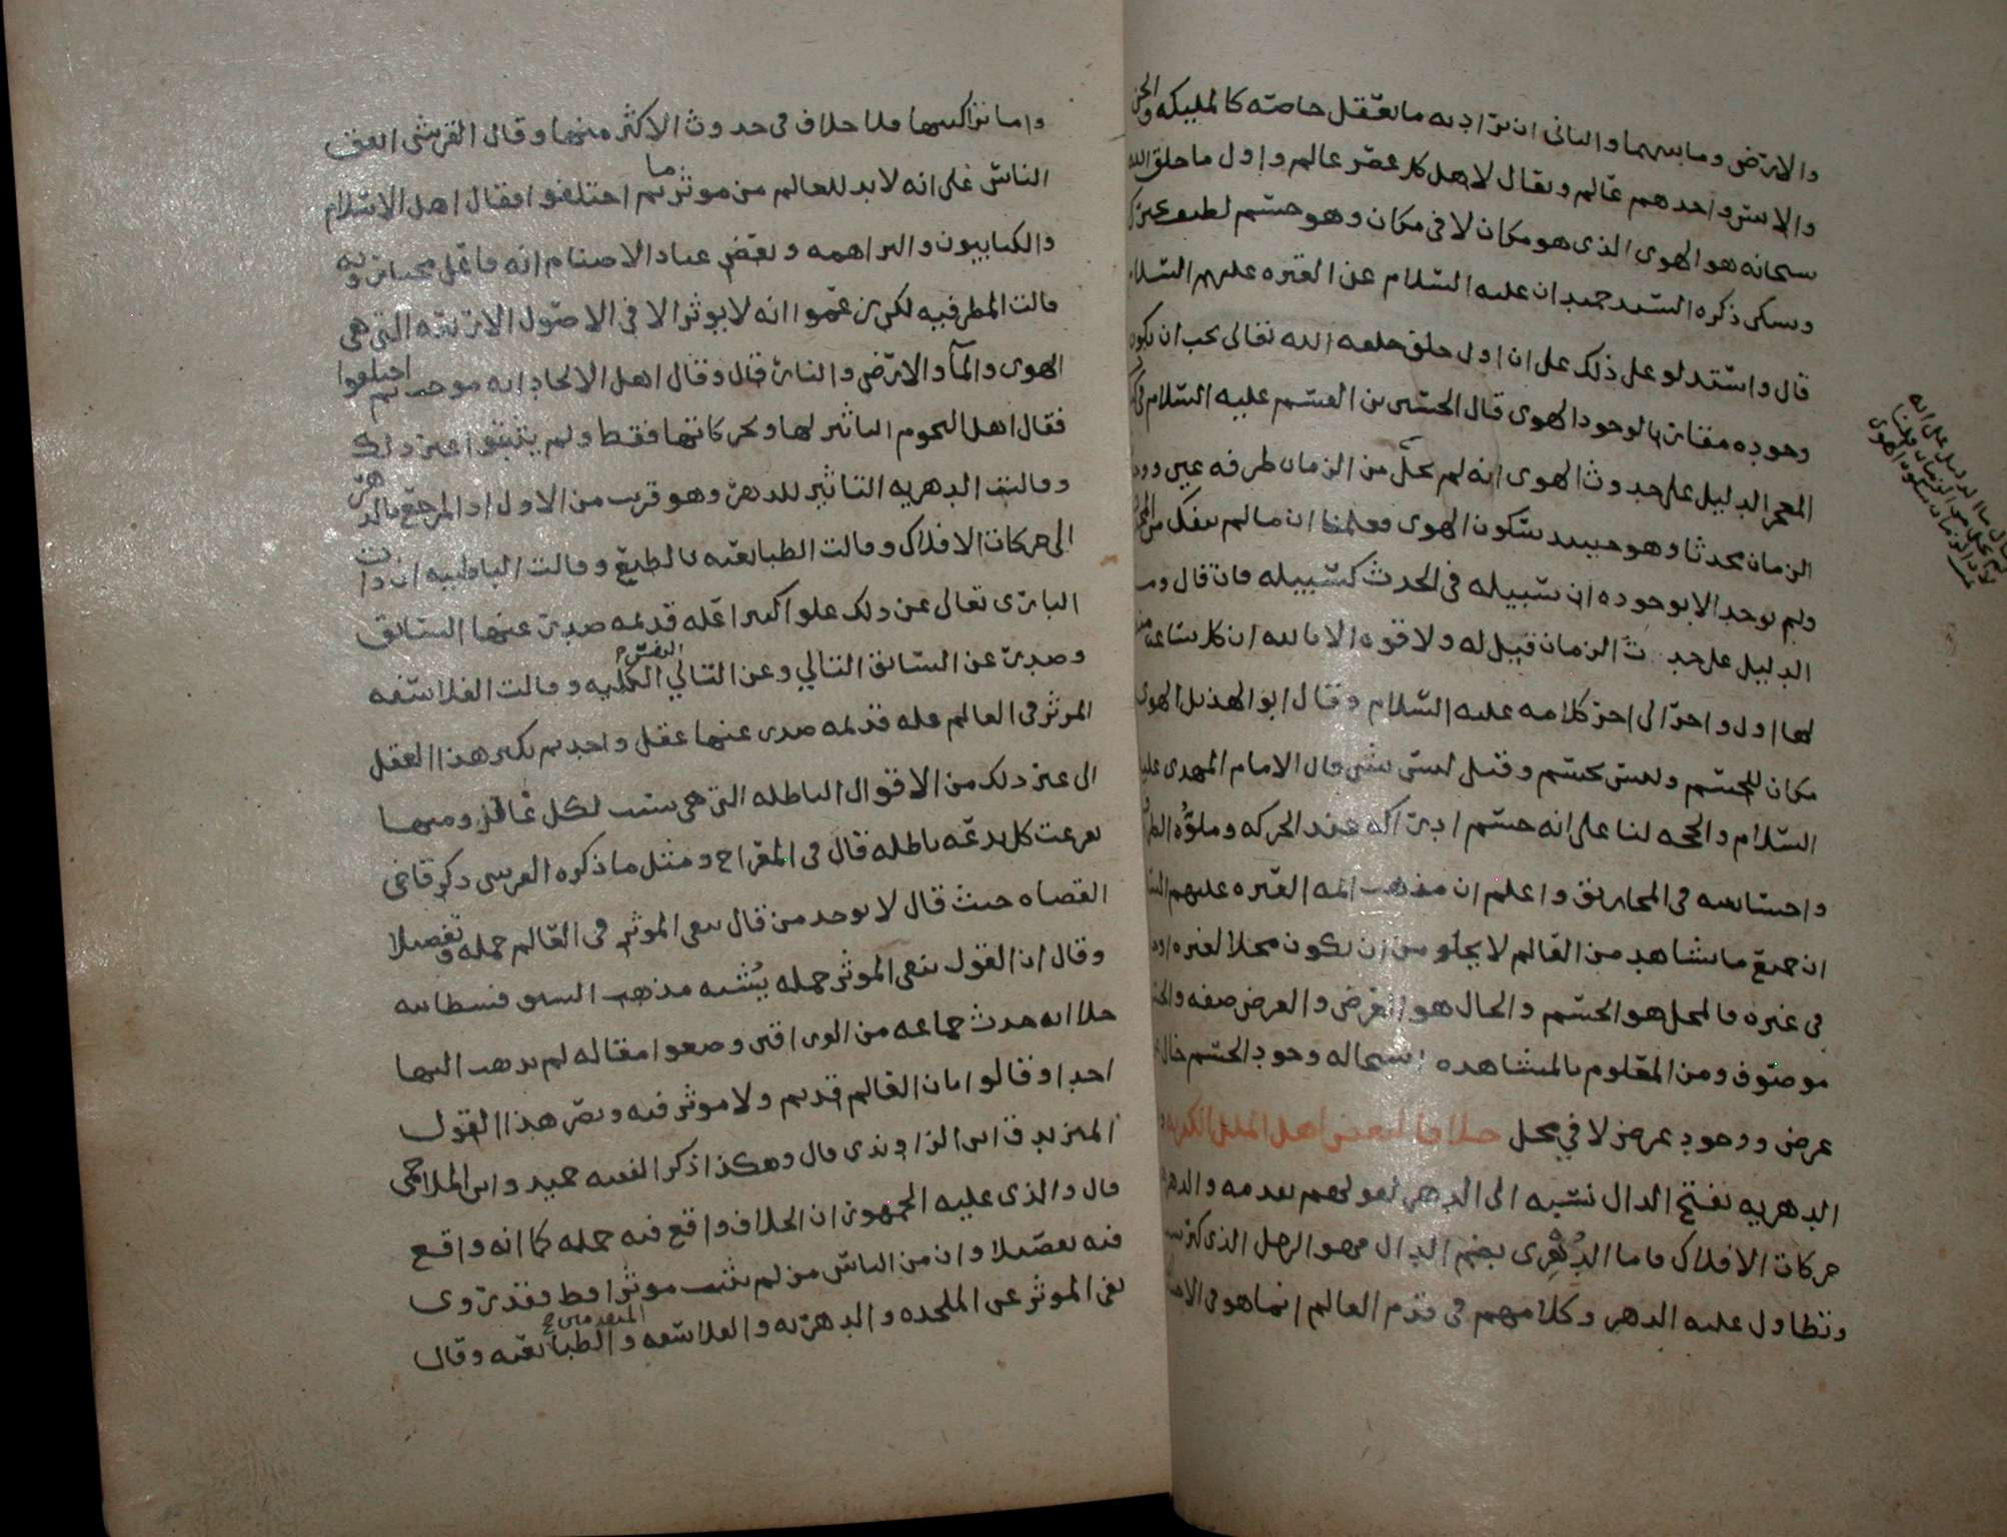 والارض وما بينهما والثاني ان يراد به ما يعقل خاصة كالمليكه والجن
والانس واحدهم عالم ويقال لاهل كل عصر عالم واول ما خلق الله
سبحانه هو الهوى الذي هو مكان لا في مكان وهو جسم لطيف
ذكره السيد حميدان عليه السلام عن العتره عليهم السلام
قال واستدلو على ذلك على ان اول خلق خلقه الله تعالى يجب ان يكون
وجوده مقارنا لوجود الهوى قال الحسين بن القسم عليه السلام في
المعجز الدليل على حدوث الهوى انه لم يخل من الزمان طرفه عين
الزمان محدثا وهو حينيذ سكون الهوى فعلمنا ان ما لم ينفك من
ولم يوجد الا بوجوده ان سبيله في الحدث كسبيله فان قال وما
الدليل على حدث الزمان قيل له ولا قوه الا بالله ان كل ساعه
لها اول واخر الى اخر كلامه عليه السلام وقال ابو الهذيل الهوى
مكان للجسم وليس بجسم وقيل ليس بشي قال الامام المهدي عليه
السلام والحجه لنا على انه جسم ادراكه عند الحركه وملؤه
واحتباسه في المخاريق واعلم ان مذهب ايمه العتره عليهم
ان جميع ما يشاهد من العالم لا يخلو من ان يكون محلا لغيره او
في غيره فالمحل هو الجسم والحال هو العرض والعرض صفه
موصوف ومن المعلوم بالمشاهده استحاله وجود الجسم خال
عرض ووجود عرض لا في محل خلافا لبعض اهل الملل الكفريه
الدهريه بفتح الدال نسبه الى الدهر لقولهم بقدمه والدهر
حركات الافلاك فاما الدُهري بضم الدال فهو الرجل الذي كبر سنه
وتطاول عليه الدهر وكلامهم في قدم العالم انما هو في
لم يخل من الزمان
واما تراكيبها فلا خلاف في حدوث الاكثر منها وقال القرشي اتفق
الناس على انه لا بد للعالم من موثر ما ثم اختلفوا فقال اهل الاسلام
والكتابيون والبراهمه وبعض عباد الاصنام انه فاعل مختار وبه
قالت المطرفيه لكن زعموا انه لا يوثر الا في الاصول الاربعه التي هي
الهوى والمآ والارض والنار قال وقال اهل الالحاد انه موجب ثم اختلفوا
فقال اهل النجوم التاثير لها ولحركاتها فقط ولم يثبتوا غير ذلك
وقالت الدهريه التاثير للدهر وهو قريب من الاول اذ المرجع بالدهر
الى حركات الافلاك وقالت الطبايعيه بالطبع وقالت الباطنيه ان ذات
الباري تعالى عن ذلك علوا كبيرا عله قديمه صدر عنها السابق
وصدر عن السابق التالي وعن التالي النفس الكليه وقالت الفلاسفه
الموثر في العالم عله قديمه صدر عنها عقل واحد ثم تكثر هذا العقل
الى غير ذلك من الاقوال الباطله التي هي سبب لكل غافل ومنها
تفرعت كل بدعه باطله قال في المعراج ومثل ما ذكره القرشي ذكر قاضي
القضاه حيث قال لا يوجد من قال بنفي الموثر في العالم جمله وتفصيلا
وقال ان القول بنفي الموثر جمله يُشبه مذهب السوفسطاييه
خلا انه حدث جماعه من الوراقين وضعوا مقاله لم يذهب اليها
احد وقالوا بان العالم قديم ولا موثر فيه ونصر هذا القول
ابن الراوندي قال وهكذا ذكر الفقيه حميد وابن الملاحمي
قال والذي عليه الجمهور ان الخلاف واقع فيه جمله كما انه واقع
فيه تفصيلا وان من الناس من لم يثبت موثرا قط فقد روى
نفي الموثر عن الملحده والدهريه والفلاسفه المتقدمين والطبايعيه وقال